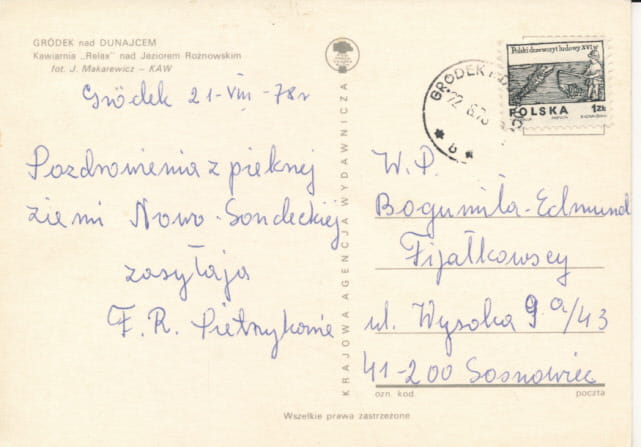 GRÓDEK nad DUNAJCEM
Kawiarnia „Relax" nad Jeziorem Rożnowskim
fot. J. Makarewicz – KAW
Gródek 21-VIII-78r
Pozdrowienia z pięknej
ziemi Nowo-Sondeckiej
zasyłają
F. R.
KRAJOWA AGENCJA WYDAWNICZA
Polski drzeworyt ludowy XVI w
POLSKA 1zł
GRÓDEK
22. 8.78
b
W. P.
Bogumiła-Edmund
Fijałkowscy
ul. Wysoka 9a/43
41-200 Sosnowiec
ozn. kod. poczta
Wszelkie prawa zastrzeżone